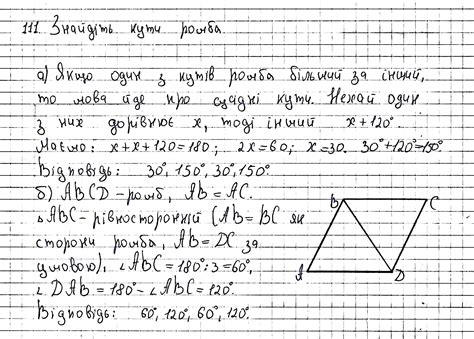 111. Знайдіть кути ромба.
а) Якщо один з кутів ромба більший за інший,
то мова йде про сусідні кути. Нехай один
з них дорівнює x, тоді інший x+120°
Маємо: x+x+120=180; 2x=60; x=30. 30°+120°=150°
Відповідь: 30°, 150°, 30°, 150°.
б) ABCD – ромб, AB = AC.
△ABC – рівносторонній (AB = BC як
сторони ромба, AB = DC за
умовою), ∠ABC = 180°:3 = 60°,
∠DAB = 180° - ∠ABC = 120°.
Відповідь: 60°, 120°, 60°, 120°.
B C
A D